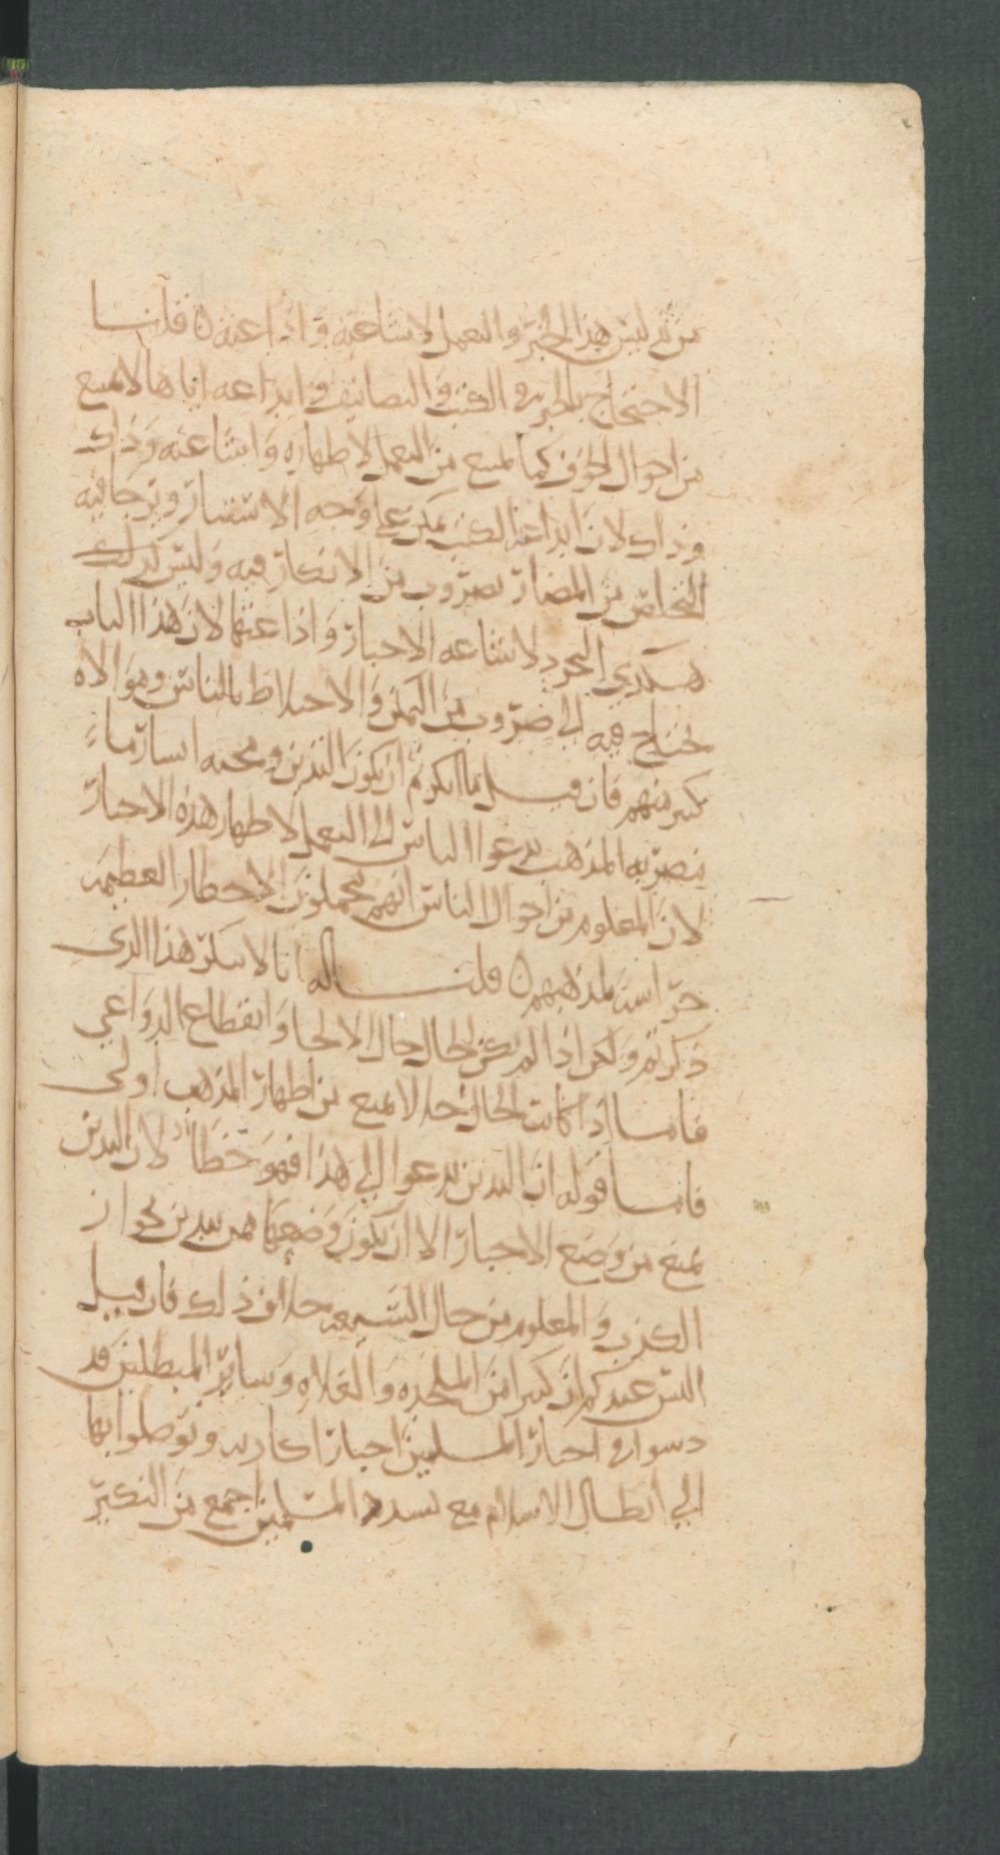 من تدليس هذا الخبر والتعمل لاشاعته واذاعته ه فاما
الاحتجاج بالخبر في الكتب والتصانيف وايداعه اياها لا يمنع
من احوال الخوف كما يمنع من التعمل لاظهاره واشاعته وذلك
وذلك لان ايداعه الكتب يمكن على وجه الاستتار ويرجا فيه
التخلص من المضار بضروب من الانكار فيه وليس كذلك
التجرد لاشاعه الاخبار واذاعتها لان هذا الباب
يحتاج فيه الى ضروب من التمكن والاختلاط بالناس
منهم فان قيل ما انكرتم ان يكون التدين ومحبه
ينصر به المذهب يدعوا الناس الى التعمل لاظهار هذه الاخبار
لان المعلوم من احوال الناس انهم يتحملون الاخطار العظيمه
حراسة لمذاهبهم ه قلنا له انا لا ننكر هذا الذي
ذكرتم ولكن اذا لم تكن الحال حال الالجا وانقطاع الدواعي
فاما اذا كانت الحال هذه لا يمنع من اظهار المذهب اولى
فاما قوله ان التدين يدعوا الى هذا فهو خطا لان التدين
يمنع من وضع الاخبار الا ان يكون وضعها ممن يتدين بجواز
الكذب والمعلوم من حال الشيعه خلاف ذلك فان قيل
اليس عندكم ان كثيرا من الملحده والغلاه وساير المبطلين قد
دسوا في اخبار المسلمين اخبارا كاذبه وتوصلوا بها
الى ابطال الاسلام مع تشدد المسلمين اجمع من النكير